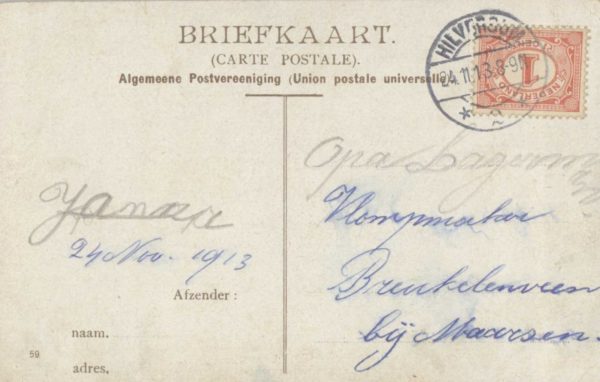 BRIEFKAART.
(CARTE POSTALE).
Algemeene Postvereeniging (Union postale universelle)
HILVERSUM
24.11.13.8-9N
NEDERLAND
1
CENT
Opa
Klompmaker
Breukelenveen
bij Maarsen.
24 Nov. 1913
Afzender:
naam.
adres.
59